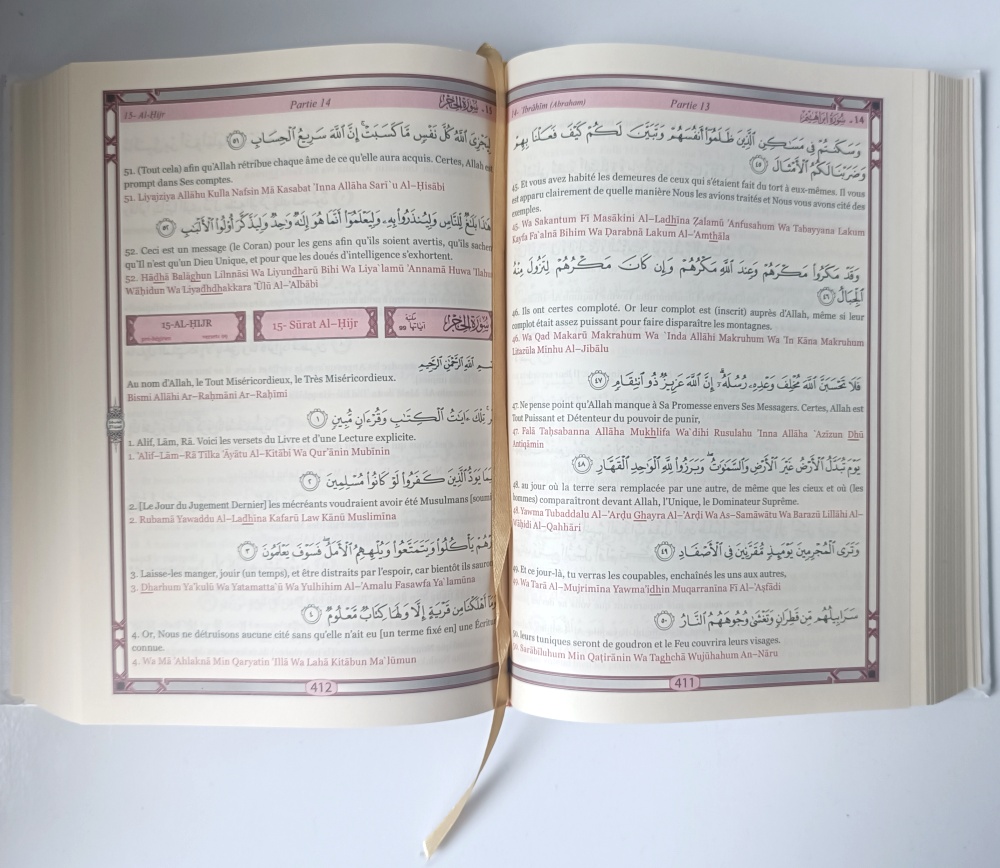 14. Ibrāhīm (Abraham) Partie 13 14. سُورَةُ إِبْرَاهِيمَ
وَسَكَنتُمْ فِي مَسَٰكِنِ ٱلَّذِينَ ظَلَمُوٓا۟ أَنفُسَهُمْ وَتَبَيَّنَ لَكُمْ كَيْفَ فَعَلْنَا بِهِمْ
وَضَرَبْنَا لَكُمُ ٱلْأَمْثَالَ ٤٥
45. Et vous avez habité les demeures de ceux qui s'étaient fait du tort à eux-mêmes. Il vous
est apparu clairement de quelle manière Nous les avions traités et Nous vous avons cité des
exemples.
45. Wa Sakantum Fī Masākini Al–Ladhīna Žalamū 'Anfusahum Wa Tabayyana Lakum
Kayfa Fa`alnā Bihim Wa Ḍarabnā Lakum Al–'Amthāla
وَقَدْ مَكَرُوا۟ مَكْرَهُمْ وَعِندَ ٱللَّهِ مَكْرُهُمْ وَإِن كَانَ مَكْرُهُمْ لِتَزُولَ مِنْهُ
ٱلْجِبَالُ ٤٦
46. Ils ont certes comploté. Or leur complot est (inscrit) auprès d'Allah, même si leur
complot était assez puissant pour faire disparaître les montagnes.
46. Wa Qad Makarū Makrahum Wa `Inda Allāhi Makruhum Wa 'In Kāna Makruhum
Litazūla Minhu Al–Jibālu
فَلَا تَحْسَبَنَّ ٱللَّهَ مُخْلِفَ وَعْدِهِۦ رُسُلَهُۥٓ ۗ إِنَّ ٱللَّهَ عَزِيزٌ ذُو ٱنتِقَامٍ ٤٧
47. Ne pense point qu'Allah manque à Sa Promesse envers Ses Messagers. Certes, Allah est
Tout Puissant et Détenteur du pouvoir de punir,
47. Falā Taḥsabanna Allāha Mukhlifa Wa`dihi Rusulahu 'Inna Allāha `Azīzun Dhū
Antiqāmin
يَوْمَ تُبَدَّلُ ٱلْأَرْضُ غَيْرَ ٱلْأَرْضِ وَٱلسَّمَٰوَٰتُ ۖ وَبَرَزُوا۟ لِلَّهِ ٱلْوَٰحِدِ ٱلْقَهَّارِ ٤٨
48. au jour où la terre sera remplacée par une autre, de même que les cieux et où (les
hommes) comparaîtront devant Allah, l'Unique, le Dominateur Suprême.
48. Yawma Tubaddalu Al–'Arḍu Ghayra Al–'Arḍi Wa As–Samāwātu Wa Barazū Lillāhi Al–
Wāḥidi Al–Qahhāri
وَتَرَى ٱلْمُجْرِمِينَ يَوْمَئِذٍ مُّقَرَّنِينَ فِي ٱلْأَصْفَادِ ٤٩
49. Et ce jour-là, tu verras les coupables, enchaînés les uns aux autres,
49. Wa Tará Al–Mujrimīna Yawma'idhin Muqarranīna Fī Al–'Aşfādi
سَرَابِيلُهُم مِّن قَطِرَانٍ وَتَغْشَىٰ وُجُوهَهُمُ ٱلنَّارُ ٥٠
50. leurs tuniques seront de goudron et le Feu couvrira leurs visages.
50. Sarābīluhum Min Qaṭirānin Wa Taghchá Wujūhahum An–Nāru
411
15- Al-Ḥijr Partie 14 15. سُورَةُ الحِجْرِ
لِيَجْزِيَ ٱللَّهُ كُلَّ نَفْسٍ مَّا كَسَبَتْ ۚ إِنَّ ٱللَّهَ سَرِيعُ ٱلْحِسَابِ ٥١
51. (Tout cela) afin qu'Allah rétribue chaque âme de ce qu'elle aura acquis. Certes, Allah est
prompt dans Ses comptes.
51. Liyajziya Allāhu Kulla Nafsin Mā Kasabat 'Inna Allāha Sarī`u Al–Ḥisābi
هَٰذَا بَلَٰغٌ لِّلنَّاسِ وَلِيُنذَرُوا۟ بِهِۦ وَلِيَعْلَمُوٓا۟ أَنَّمَا هُوَ إِلَٰهٌ وَٰحِدٌ وَلِيَذَّكَّرَ أُو۟لُوا۟ ٱلْأَلْبَٰبِ ٥٢
52. Ceci est un message (le Coran) pour les gens afin qu'ils soient avertis, qu'ils sachent
qu'Il n'est qu'un Dieu Unique, et pour que les doués d'intelligence s'exhortent.
52. Hādhā Balāghun Lilnnāsi Wa Liyundharū Bihi Wa Liya`lamū 'Annamā Huwa 'Ilahun
Wāḥidun Wa Liyadhdhakkara 'Ūlū Al–'Albābi
15-AL-ḤIJR 15- Sūrat Al–Ḥijr مَكِّيَّة آيَاتُهَا 99 سُورَةُ الحِجْرِ
بِسْمِ ٱللَّهِ ٱلرَّحْمَٰنِ ٱلرَّحِيمِ
Au nom d'Allah, le Tout Miséricordieux, le Très Miséricordieux.
Bismi Allāhi Ar–Raḥmāni Ar–Raḥīmi
تِلْكَ ءَايَٰتُ ٱلْكِتَٰبِ وَقُرْءَانٍ مُّبِينٍ ١
1. Alif, Lām, Rā. Voici les versets du Livre et d'une Lecture explicite.
1. 'Alif–Lām–Rā Tilka 'Āyātu Al–Kitābi Wa Qur'ānin Mubīnin
رُّبَمَا يَوَدُّ ٱلَّذِينَ كَفَرُوا۟ لَوْ كَانُوا۟ مُسْلِمِينَ ٢
2. [Le Jour du Jugement Dernier] les mécréants voudraient avoir été Musulmans [soumis].
2. Rubamā Yawaddu Al–Ladhīna Kafarū Law Kānū Muslimīna
ذَرْهُمْ يَأْكُلُوا۟ وَيَتَمَتَّعُوا۟ وَيُلْهِهِمُ ٱلْأَمَلُ ۖ فَسَوْفَ يَعْلَمُونَ ٣
3. Laisse-les manger, jouir (un temps), et être distraits par l'espoir, car bientôt ils sauront!
3. Dharhum Ya'kulū Wa Yatamatta`ū Wa Yulhihim Al–'Amalu Fasawfa Ya`lamūna
وَمَآ أَهْلَكْنَا مِن قَرْيَةٍ إِلَّا وَلَهَا كِتَابٌ مَّعْلُومٌ ٤
4. Or, Nous ne détruisons aucune cité sans qu'elle n'ait eu [un terme fixé en] une Écriture
connue.
4. Wa Mā 'Ahlaknā Min Qaryatin 'Illā Wa Lahā Kitābun Ma`lūmun
412